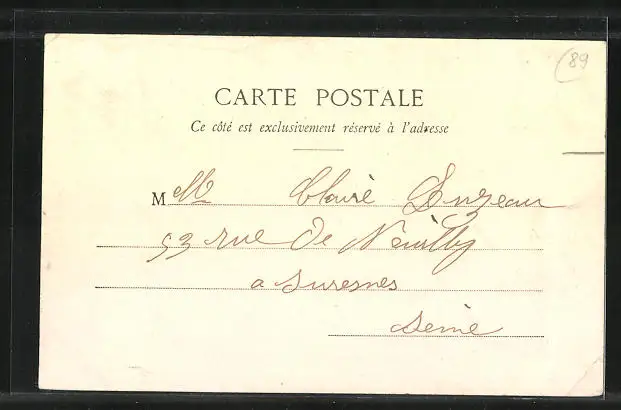 (89
CARTE POSTALE
Ce côté est exclusivement réservé à l'adresse
Melle Claire Duzeau
53 rue De Neuilly
a Suresnes
Seine